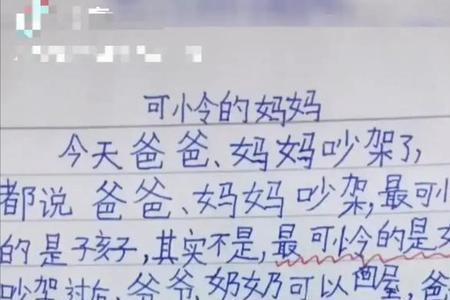 可怜的妈妈
今天爸爸、妈妈吵架了,
都说爸爸、妈妈吵架,最可
的是孩子,其实不是,最可怜的是
吵架过后、爷爷、奶奶可以 屋,爸